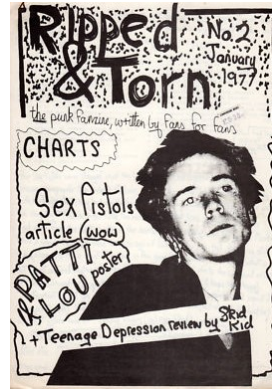 RIPPed
& TORN
No.2
January
1977
the punk fanzine, written by fans for fans
CHARTS
Sex Pistols
article (wow)
PATTI
& LOU poster
+ Teenage Depression review by Skid
Kid